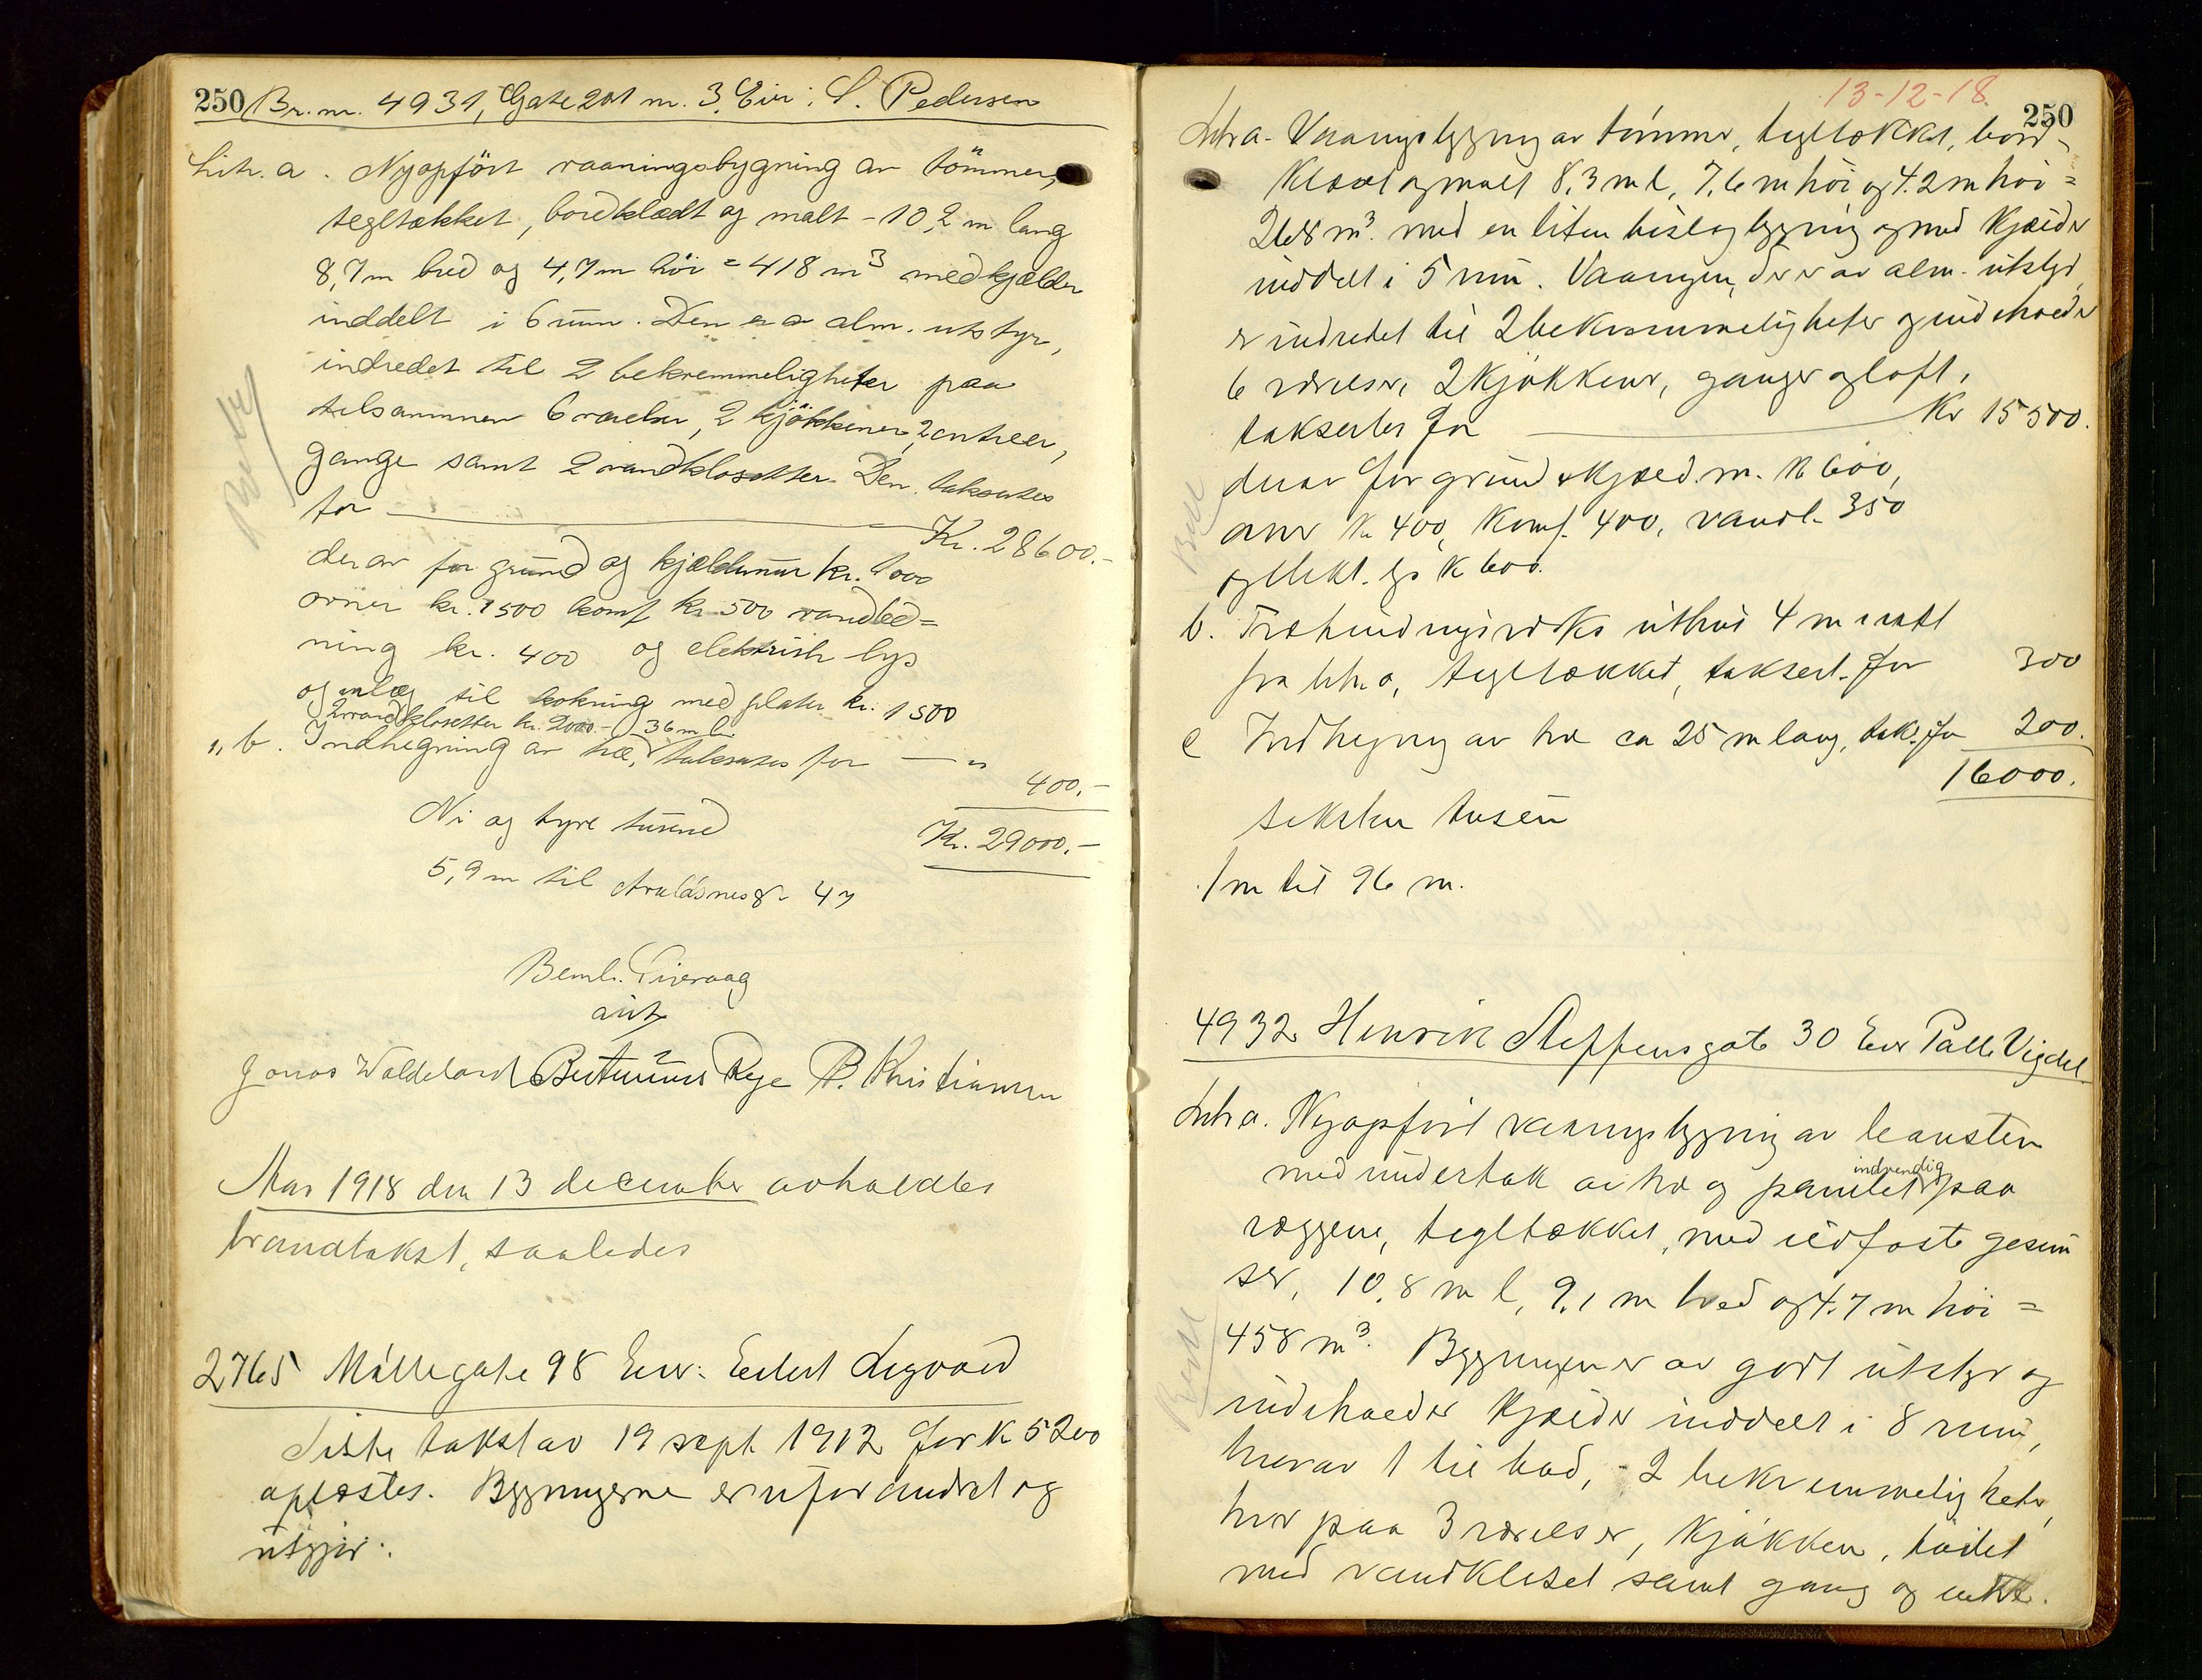 250 Br. nr. 4931, Gate 201 nr. 3. Eier: S. Pedersen
Litr. a. Nyopført vaaningsbygning av tømmer,
tegltækket, bordklædt og malt - 10,2 m lang
8,7 m bred og 4,7 m høi = 418 m³ med kjælder
inddelt i 6 rum. Den er a alm. utstyr,
indredet til 2 bekvemmeligheter paa
tilsammen 6 værelser, 2 kjøkkener, 2 entreer,
gange samt 2 vandklosetter. Den takseres
for Kr. 28600.-
derav for grund og kjældermur kr. 4000
ovner kr. 1500 komf kr. 500 vandled=
ning kr. 400 og elektrisk lys
og inlæg til kokning med plater kr. 1500
2 vandklosetter kr. 2000.- 36 m l.
" b. Indhegning av træ, takseres for - "
400.-
Ni og tyve tusind Kr. 29000.-
5,9 m til Avaldsnesg. 47
Bemb. Tveraag
Jonas Waldeland Rye P. Kristiansen
Aar 1918 den 13 december avholdtes
brandtakst, saaledes
2765 Møllegate 98 Eier: Eilert Legvold
Siste takst av 19 sept 1912 for K 5200
oplæstes. Bygningerne er uforandret og
utgjør:
13-12-18.
250
Litr a. Vaaningsbygning av tømmer, tegltækket, bord-
klædt og malt 8,3 m l, 7,6 m høi og 4.2 m høi =
268 m³. med en liten bislagbygning og med kjælder
inddelt i 5 rum. Vaaningen, der er av alm. utstyr,
er indredet til 2 bekvemmeligheter og indeholder
6 værelser, 2 kjøkkener, ganger og loft,
takseres for Kr 15500.
derav for grund & kjæld. m. K 600,
ovner K 400, Komf. 400, vandl. 350
og elekt. lys K 600.
b. Træbindingsverks uthus 4 m
fra litr. a, tegltækket, taksert for 300
c Indhegning av træ ca 25 m lang, taks. for 200.
16000.
seksten tusen
1 m til 96 m.
4932 Henrik Steffensgate 30 Eier Palle Vigdel
Litr a. Nyopført vaaningsbygning av leansten
med undertak av træ og panelet indvendig paa
væggene, tegltækket, med utført gesim
ser, 10,8 m l, 9,1 m bred og 4.7 m høi =
458 m³. Bygningen er av godt utstyr og
indeholder kjælder inddelt i 8 rum,
hvorav 1 til bad, - 2 bekvemmeligheter,
hver paa 3 værelser, kjøkken, toilet
med vandkloset samt gang og entre.